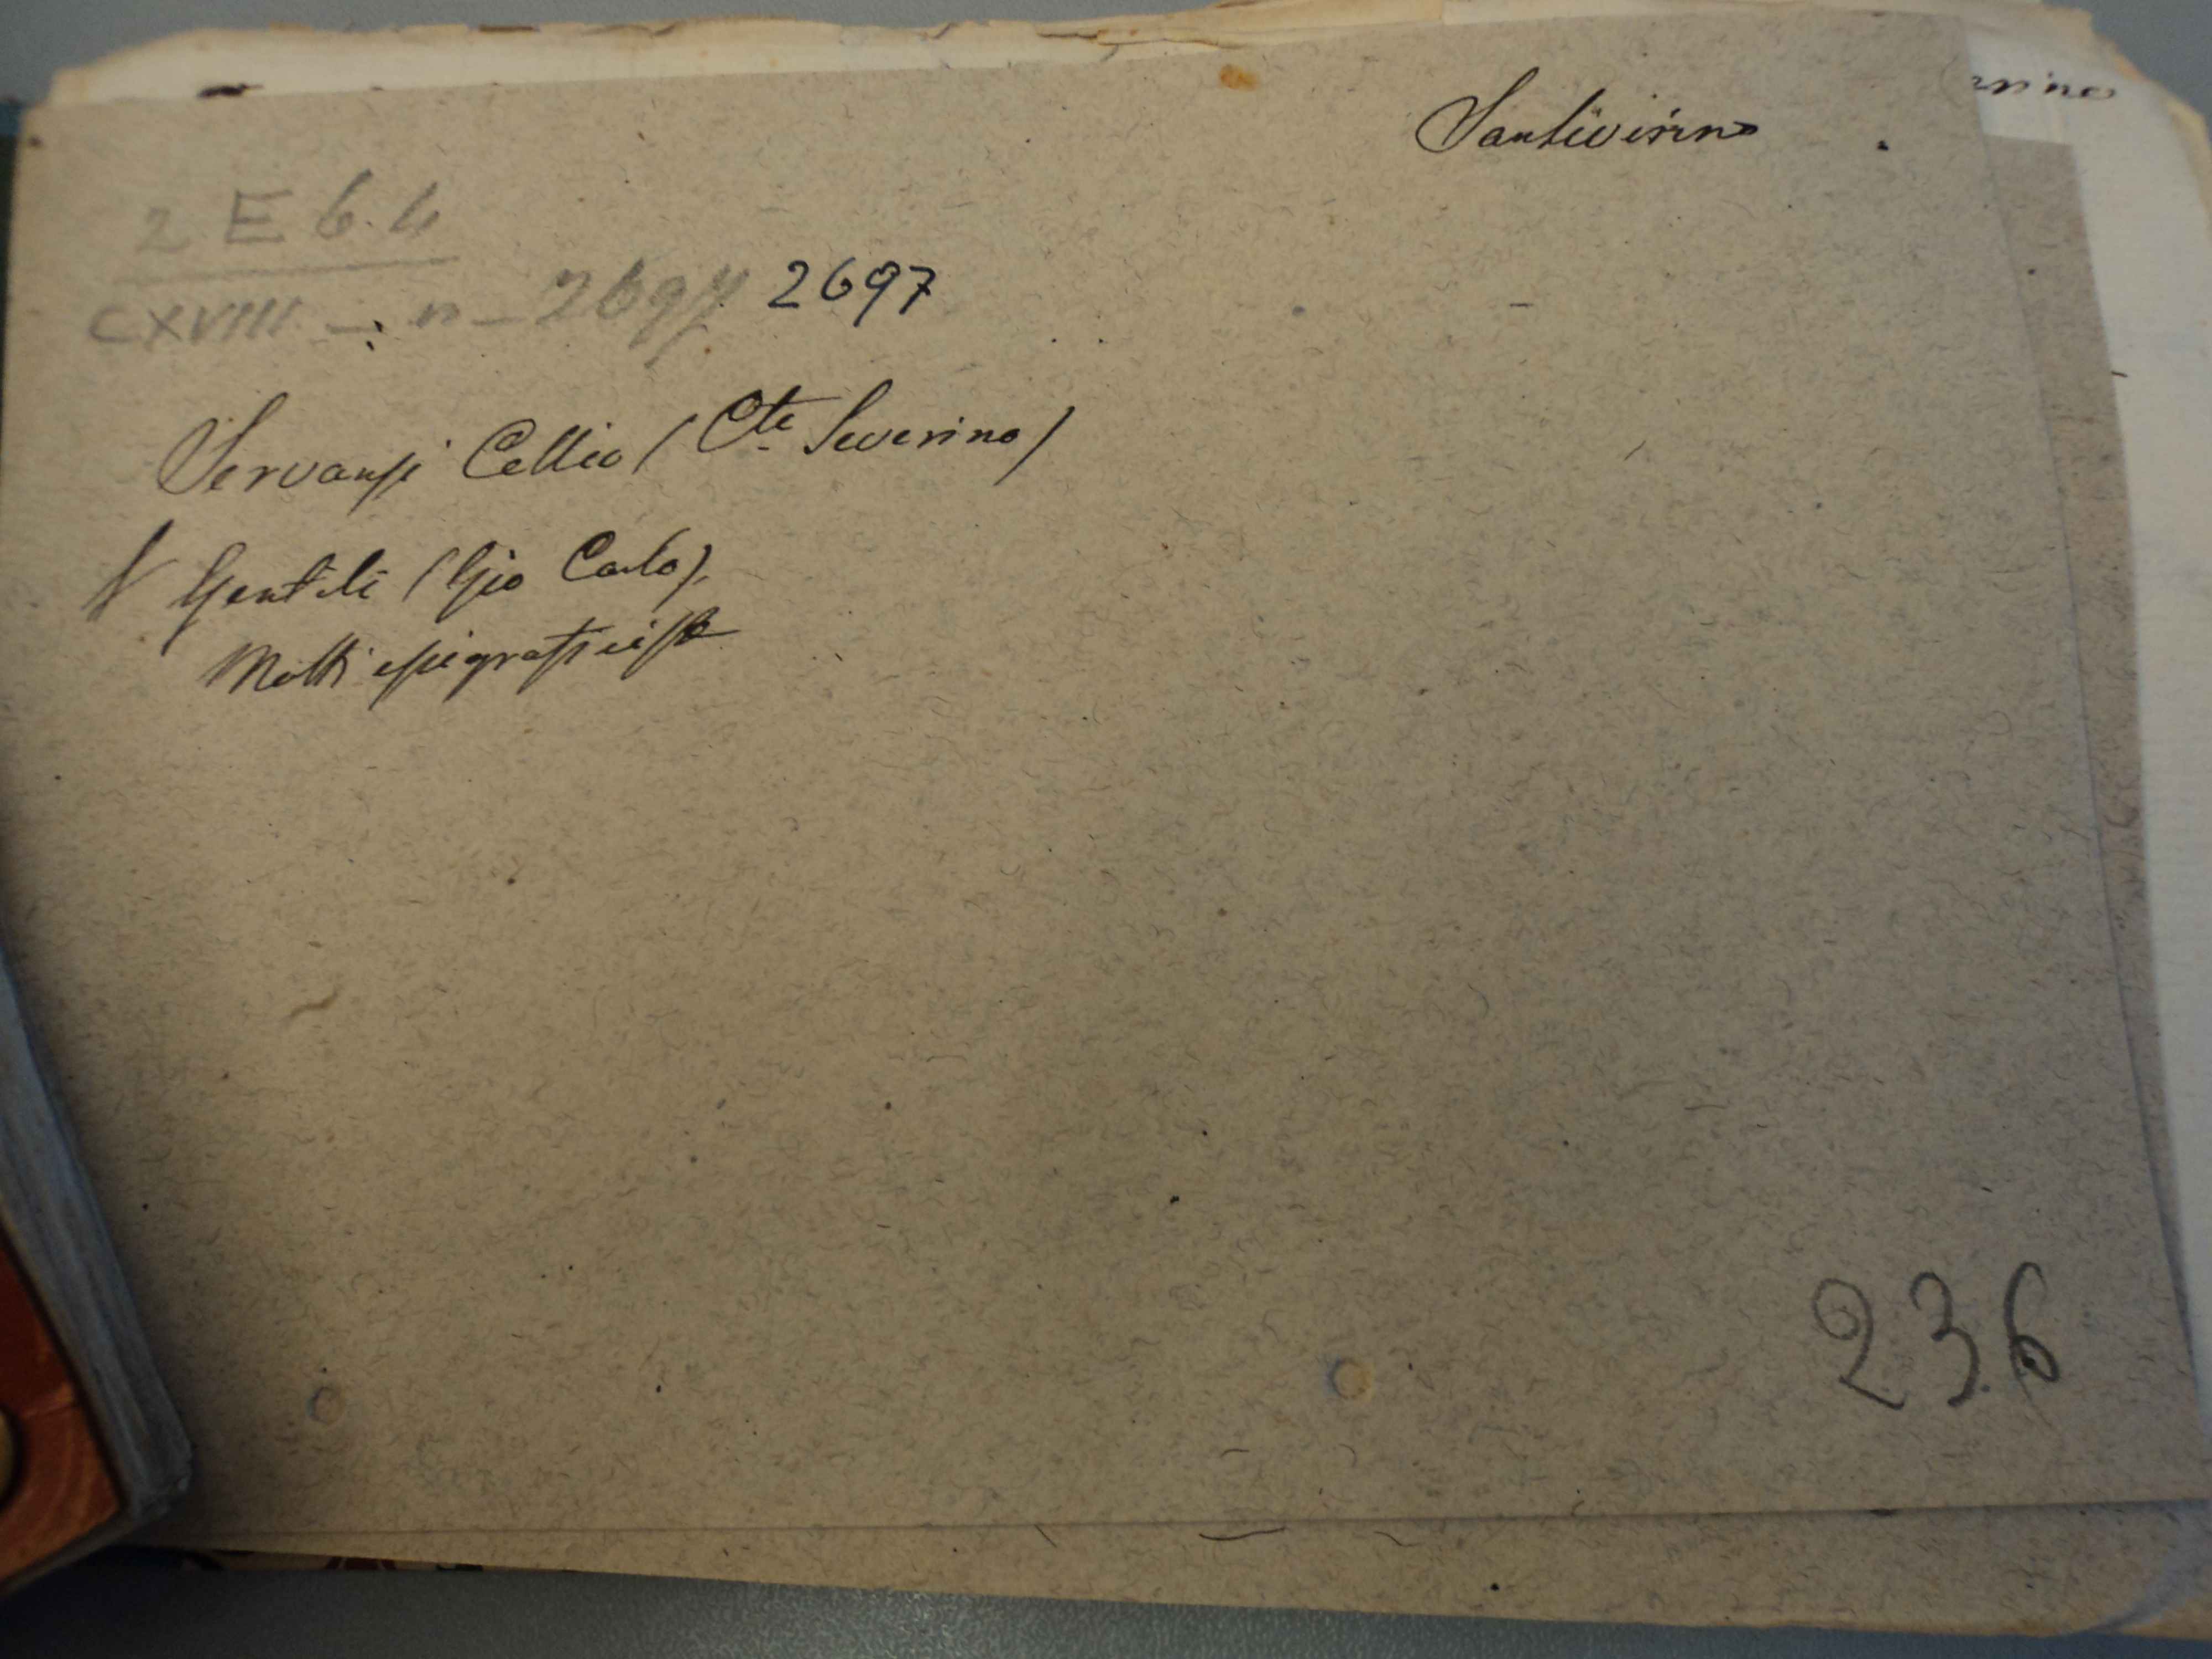 Santiverino
2 E 6.4
CXVIII - n - 2697 2697
Servanzi Collio (Cte Severino)
Gentili (Gio Carlo),
Molti epigrafi
236